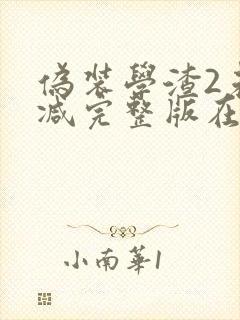 偽裝學渣2未
減完整版在
小南華1